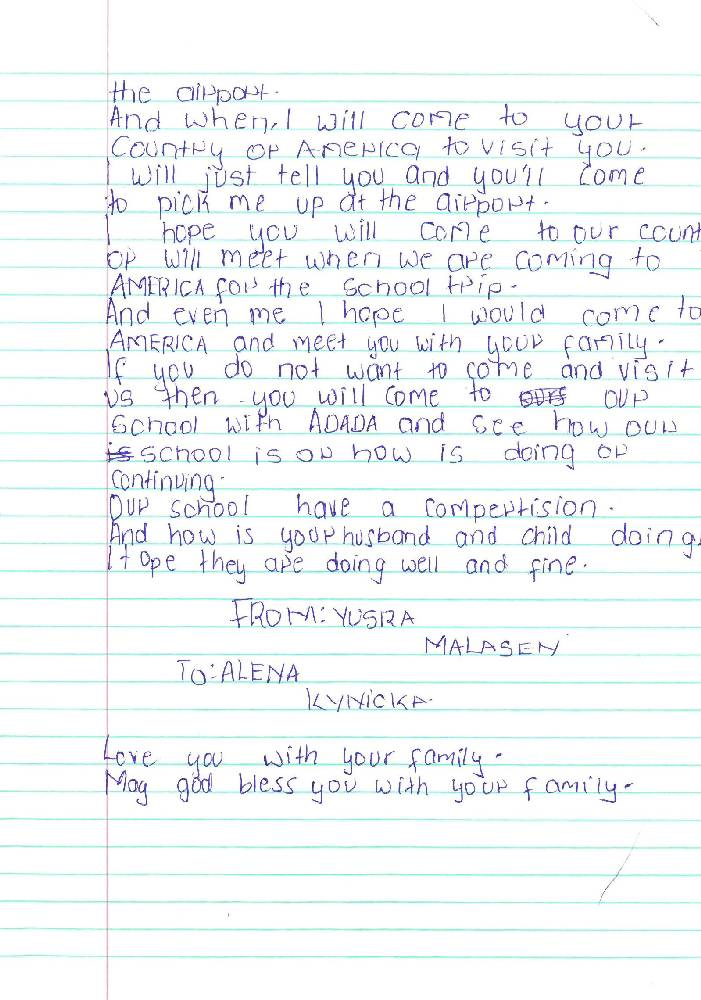 the airport.
And when, I will come to your
Country or AMERICA to visit you.
I will just tell you and you'll come
to pick me up at the airport.
I hope you will come to our count
or will meet when we are coming to
AMERICA for the school trip.
And even me I hope I would come to
AMERICA and meet you with your family.
If you do not want to come and visit
us then you will come to our
school with ADADA and see how our
school is or how is doing or
continuing.
Our school have a compertision.
And how is your husband and child doing.
I Hope they are doing well and fine.
FROM: YUSRA
MALASEN
TO: ALENA
KYNICKA.
Love you with your family.
May god bless you with your family.